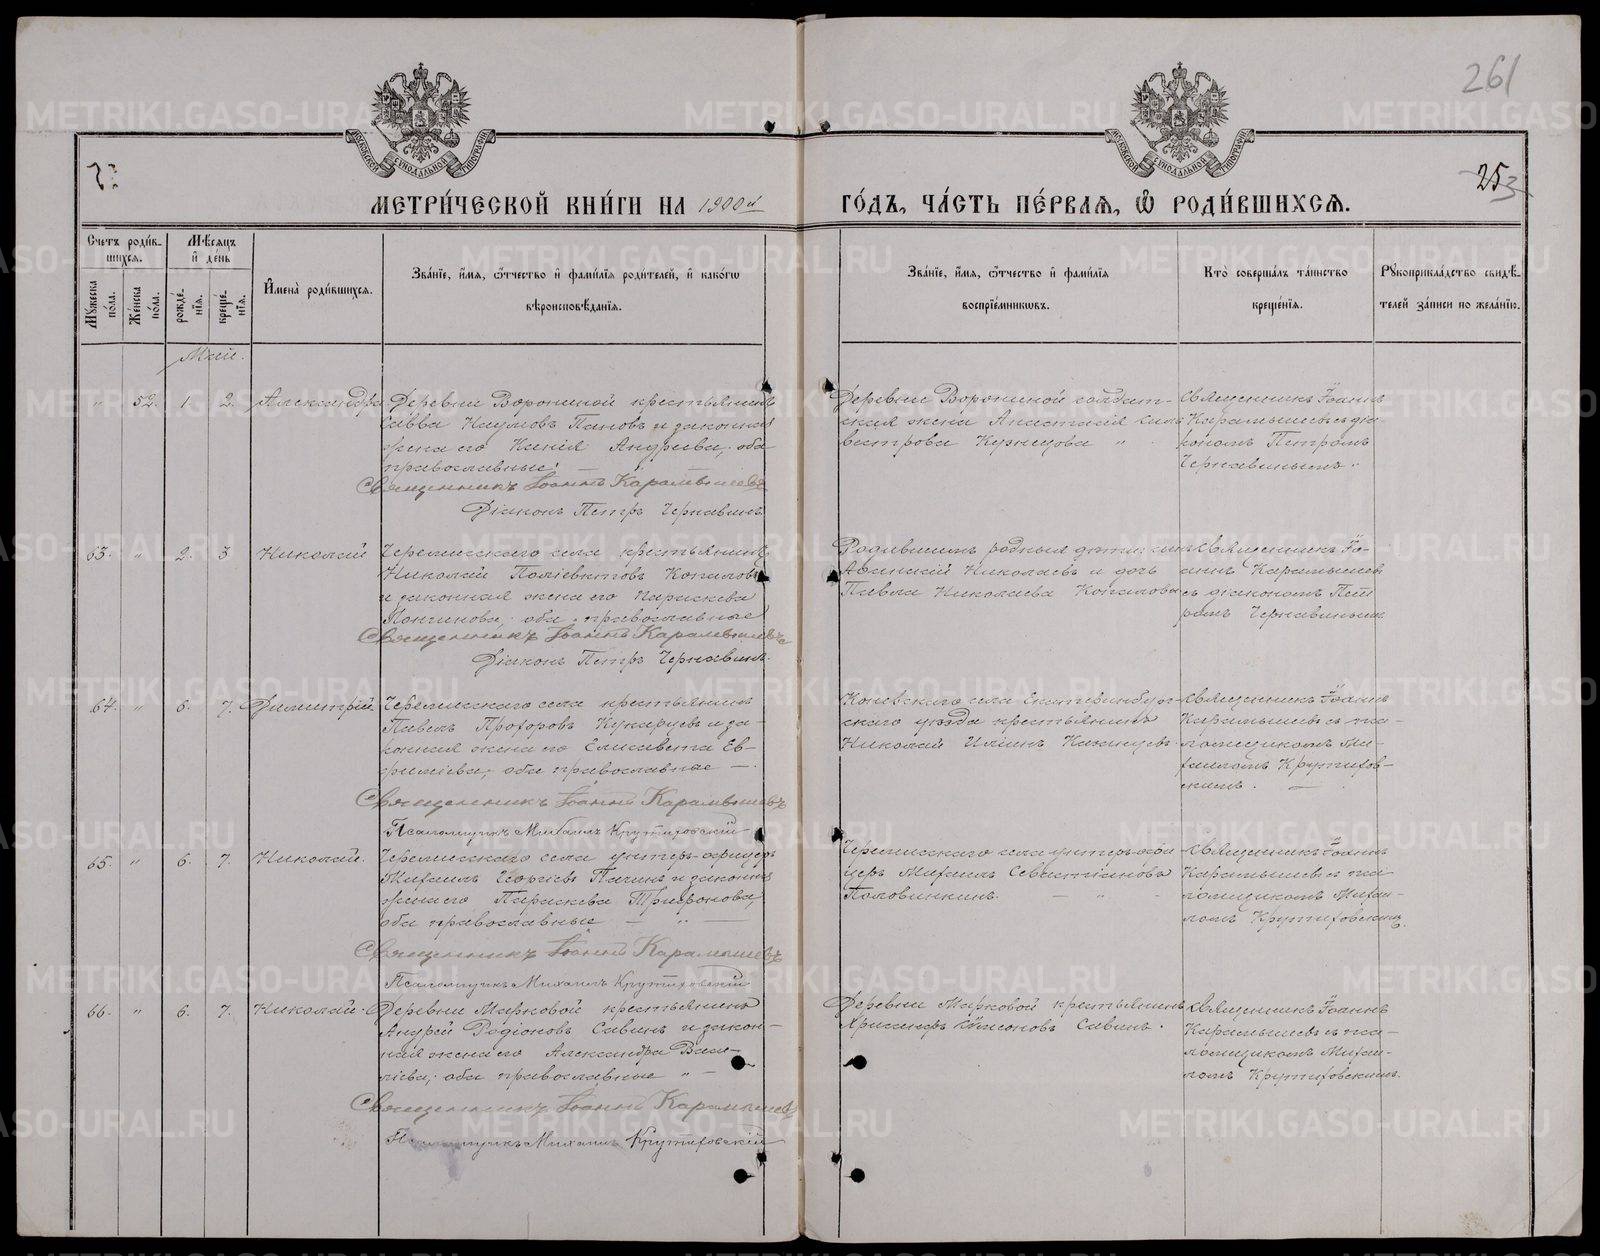 261
25
МЕТРИ́ЧЕСКОЙ КНИ́ГИ НА 1900й ГО́ДЪ, ЧА́СТЬ ПЕ́РВАЯ, Ѿ РОДИ́ВШИХСЯ.
Счетъ роди́в-
шихся.
Мѣсяцъ
и҆ де́нь
Мꙋжеска
по́ла.
Же́нска
по́ла.
рожде́-
нїѧ.
креще́-
нїѧ.
И҆мена̀ роди́вшихсѧ.
Зва́нїе, и҆́мѧ, ѻ҆́тчество и҆ фами́лїѧ роди́телей, и҆ како́гѡ
вѣроисповѣ́данїѧ.
Зва́нїе, и҆́мѧ, ѻ҆́тчество и҆ фами́лїѧ
воспрїе́мникѡвъ.
Кто̀ соверша́лъ та́инство
креще́нїѧ.
Рꙋкоприкла́дство свидѣ́-
телей за́писи по жела́нїю.
Май.
" 52. 1. 2. Александра
Деревни Ворониной крестьянинъ
Савва Наумовъ Пановъ и законная
жена его Ксенія Андреева, оба
православные.
Священникъ Іоаннъ Карамышевъ
Діаконъ Петръ Чернавинъ
Деревни Ворониной солдат-
ская жена Анастасія Силь-
вестрова Кузнецова "
Священникъ Іоаннъ
Карамышевъ съ діа-
кономъ Петромъ
Чернавинымъ.
63. " 2. 3 Николай
Черемисскаго села крестьянинъ
Николай Поліевктовъ Копаловъ
и законная жена его Параскева
Логинова, оба православные
Священникъ Іоаннъ Карамышевъ
Діаконъ Петръ Чернавинъ.
Родившимъ родныя дѣти: сынъ
Николаевъ и дочь
Павла Николаева Копаловы
Священникъ Іо-
аннъ Карамышев
съ діакономъ Пет
ромъ Чернавинымъ
64. " 6. 7. Димитрій
Черемисскаго села крестьянинъ
Павелъ Прохоровъ Кукарцевъ и за-
конная жена его Елисавета Ев-
фиміева, оба православные —.
Священникъ Іоаннъ Карамышевъ
Псаломщикъ Михаилъ Крутиховскій
Коневскаго села Екатеринбург-
скаго уѣзда крестьянинъ
Николай Ильинъ
Священникъ Іоаннъ
Карамышевъ съ пса-
ломщикомъ Ми-
хаиломъ Крутихов-
скимъ. —
65. " 6. 7. Николай.
Черемисскаго села унтеръ-офицеръ
Михаилъ Георгіевъ Пачинъ и законная
жена его Параскева Трифонова,
оба православные — " —
Священникъ Іоаннъ Карамышевъ
Псаломщикъ Михаилъ Крутиховскій
Черемисскаго села унтеръ-офи
церъ Михаилъ Севастіановъ
Половинкинъ. — " -
Священникъ Іоаннъ
Карамышевъ съ пса
ломщикомъ Михаи-
ломъ Крутиховскимъ.
66. " 6. 7. Николай.
Деревни Марковой крестьянинъ
Андрей Родіоновъ Савинъ и закон-
ная жена его Александра Васи-
ліева, оба православные " —
Священникъ Іоаннъ Карамышевъ
Псаломщикъ Михаилъ Крутиховскій
Деревни Марковой крестьянинъ
Хрисанфъ Савинъ.
Священникъ Іоаннъ
Карамышевъ съ пса-
ломщикомъ Михаи-
ломъ Крутиховскимъ.